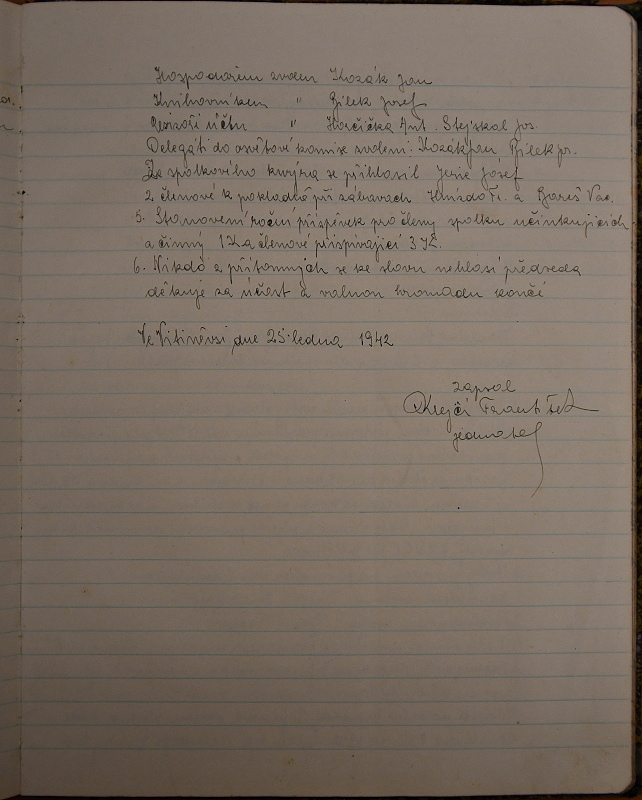 Hospodářem zvolen Kozák Jan
Knihovníkem " Bílek Josef
Revisoři účtu " Horčička Ant. Stejskal Jos.
Delegáti do osvětové komise zvoleni: Kozák Jan Bílek Jos.
Za spolkového se přihlásil Josef
2 členové k pokladně při zábavach Fr. a Bareš Vac.
5. Stanovení roční příspěvek pro členy spolku učinkujících
a činný 1 K a členové přispívající 3 K.
6. Nikdo z přítomných se ke slovu nehlásí předseda
děkuje za účast a valnou hromadu končí
Ve Vitiněvsi dne 25 ledna 1942
zapsal
Krejčí František
jednatel